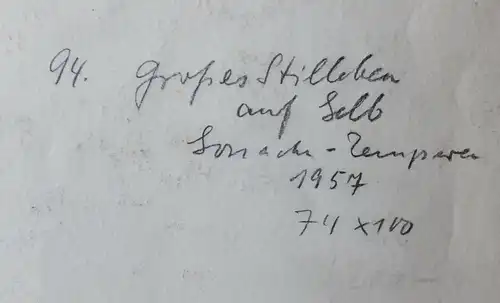 94. Großes Stilleben
auf Gelb
1957
74 x 100